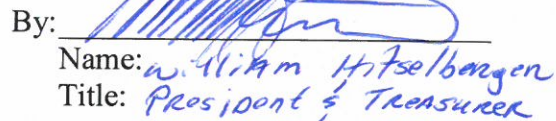 By:
Name: William Hitselbergen
Title: President & Treasurer